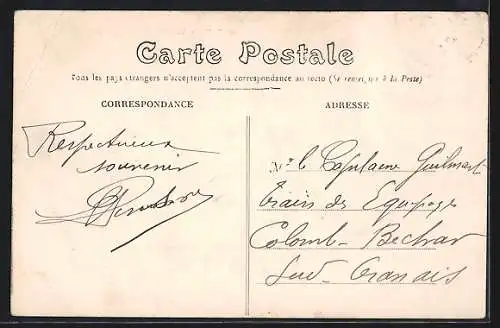 Carte Postale
Tous les pays étrangers n'acceptent pas la correspondance au recto (Se renseigner à la Poste)
CORRESPONDANCE
ADRESSE
Respectueux
souvenir
Mr le Capitaine Guilmart
Train des Equipages
Colomb-Bechar
Sud-Oranais